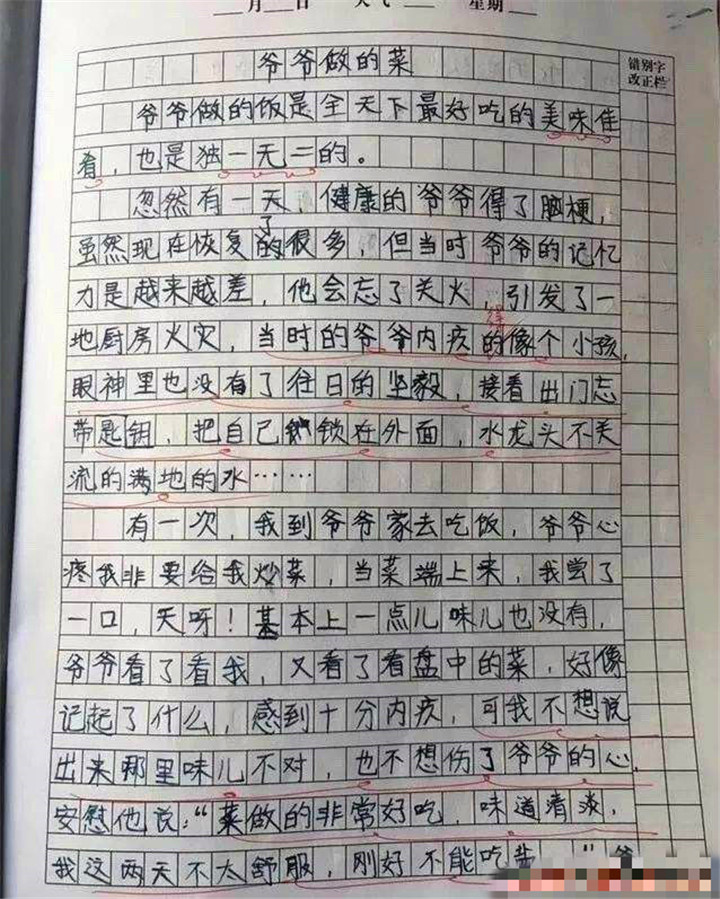 月 日 天气 星期
错别字
改正栏
爷爷做的菜
爷爷做的饭是全天下最好吃的美味佳
肴，也是独一无二的。
忽然有一天，健康的爷爷得了脑梗，
了
虽然现在恢复的很多，但当时爷爷的记忆
力是越来越差，他会忘了关火，引发了一
地厨房火灾，当时的爷爷内疚的像个小孩，
眼神里也没有了往日的坚毅，接着出门忘
带匙钥，把自己锁在外面，水龙头不关
流的满地的水……
有一次，我到爷爷家去吃饭，爷爷心
疼我非要给我炒菜，当菜端上来，我尝了
一口，天呀！基本上一点儿味儿也没有，
爷爷看了看我，又看了看盘中的菜，好像
记起了什么，感到十分内疚，可我不想说
出来那里味儿不对，也不想伤了爷爷的心，
安慰他说：“菜做的非常好吃，味道清淡，
我这两天不太舒服，刚好不能吃盐